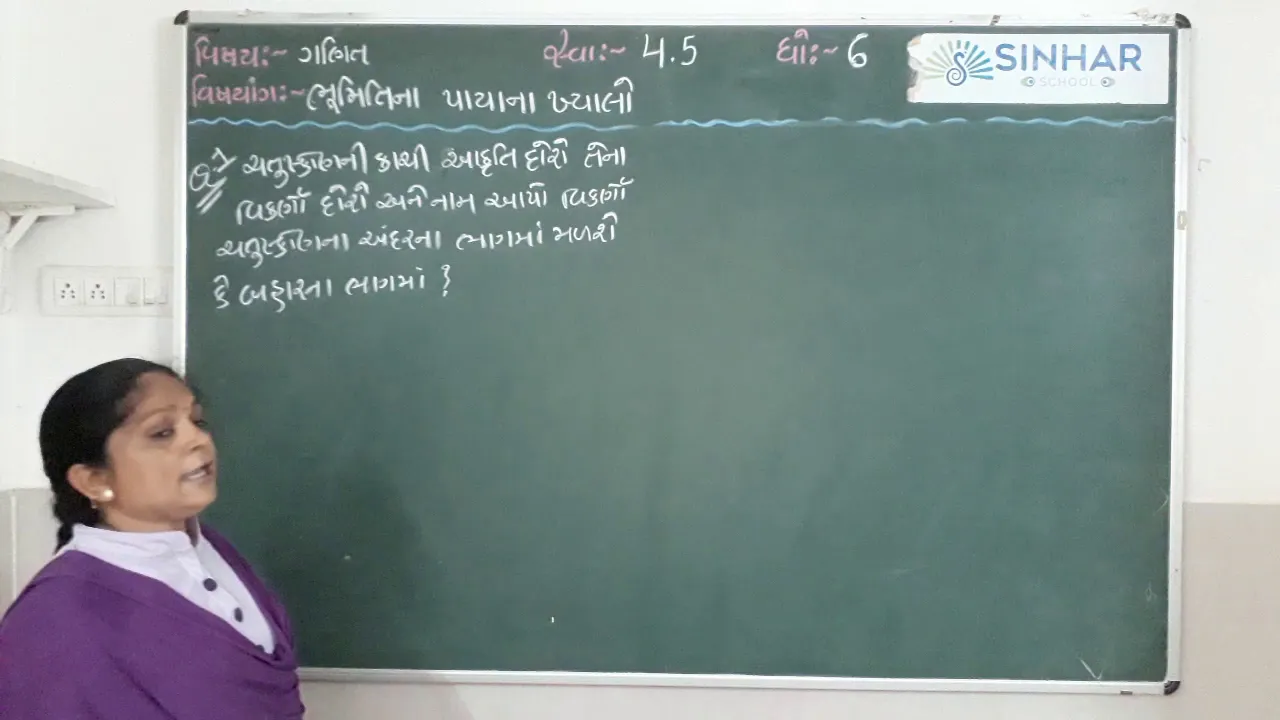 વિષય:- ગણિત સ્વા:- 4.5 ધો:- 6 SINHAR
SCHOOL
વિષયાંગ:- ભૂમિતિના પાયાના ખ્યાલો
Q-1 ચતુષ્કોણની કાચી આકૃતિ દોરો તેના
વિકર્ણો દોરો અને નામ આપો વિકર્ણો
ચતુષ્કોણના અંદરના ભાગમાં મળશે
કે બહારના ભાગમાં ?